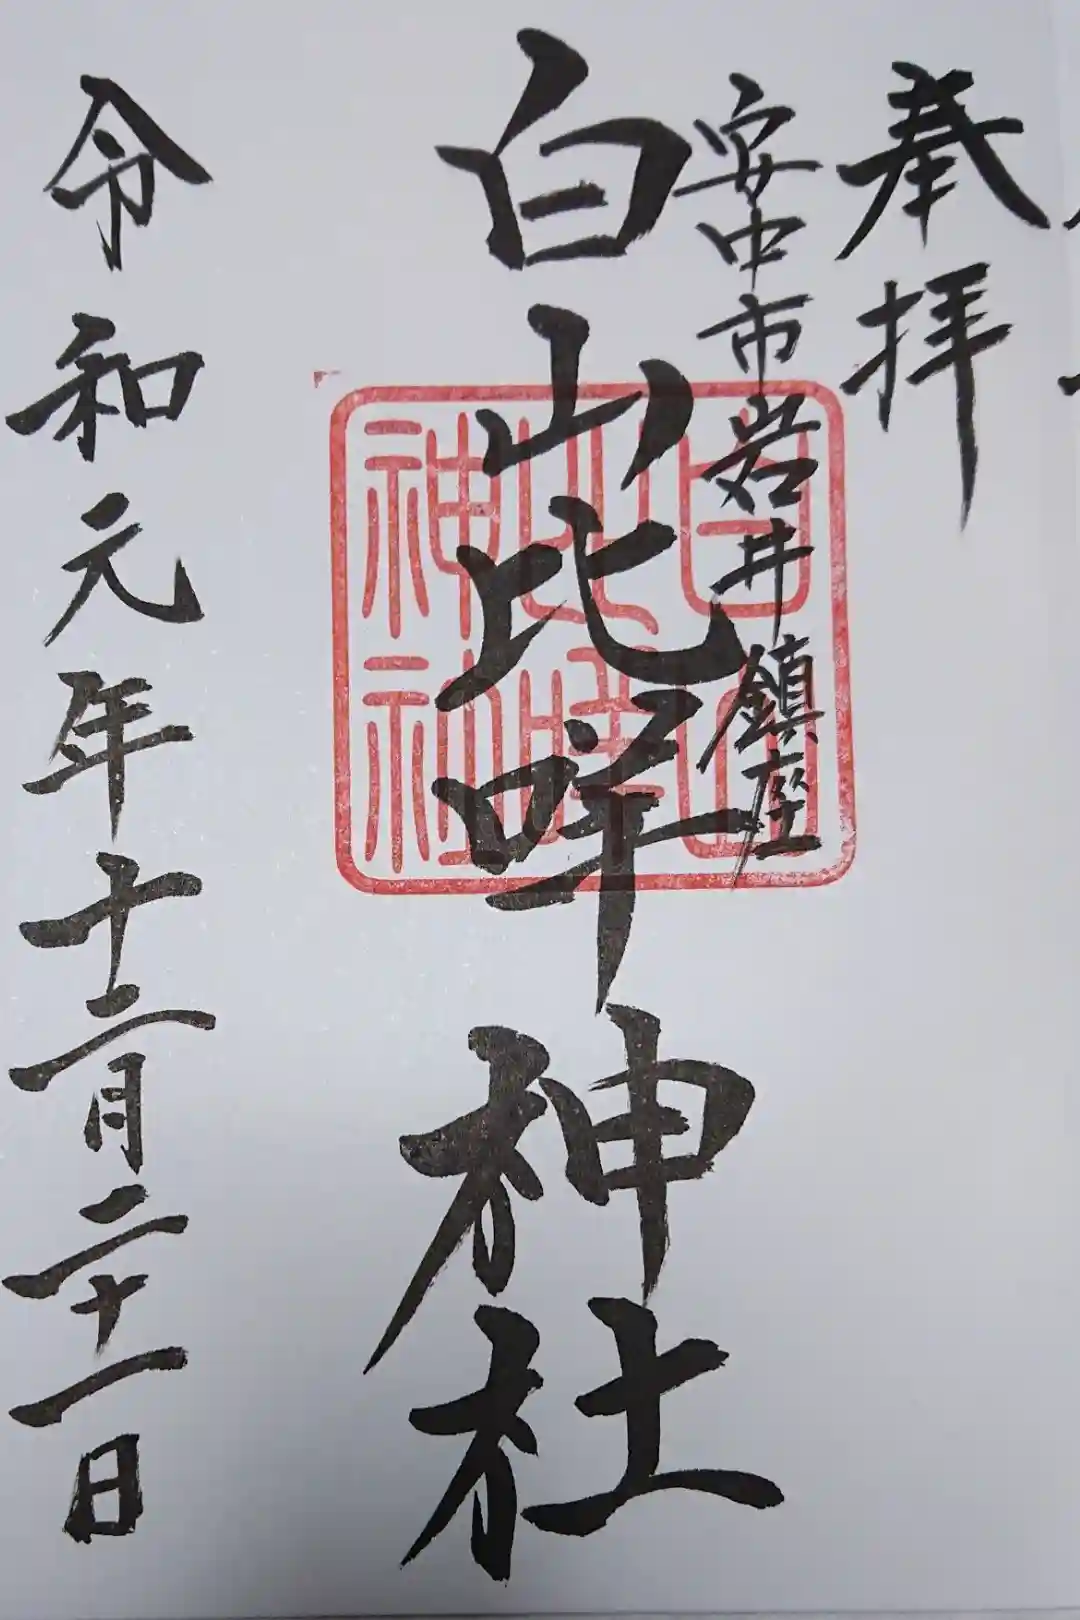 奉拝
安中市岩井鎮座
白山比咩神社
令和元年十二月二十一日
白山
比咩
神社